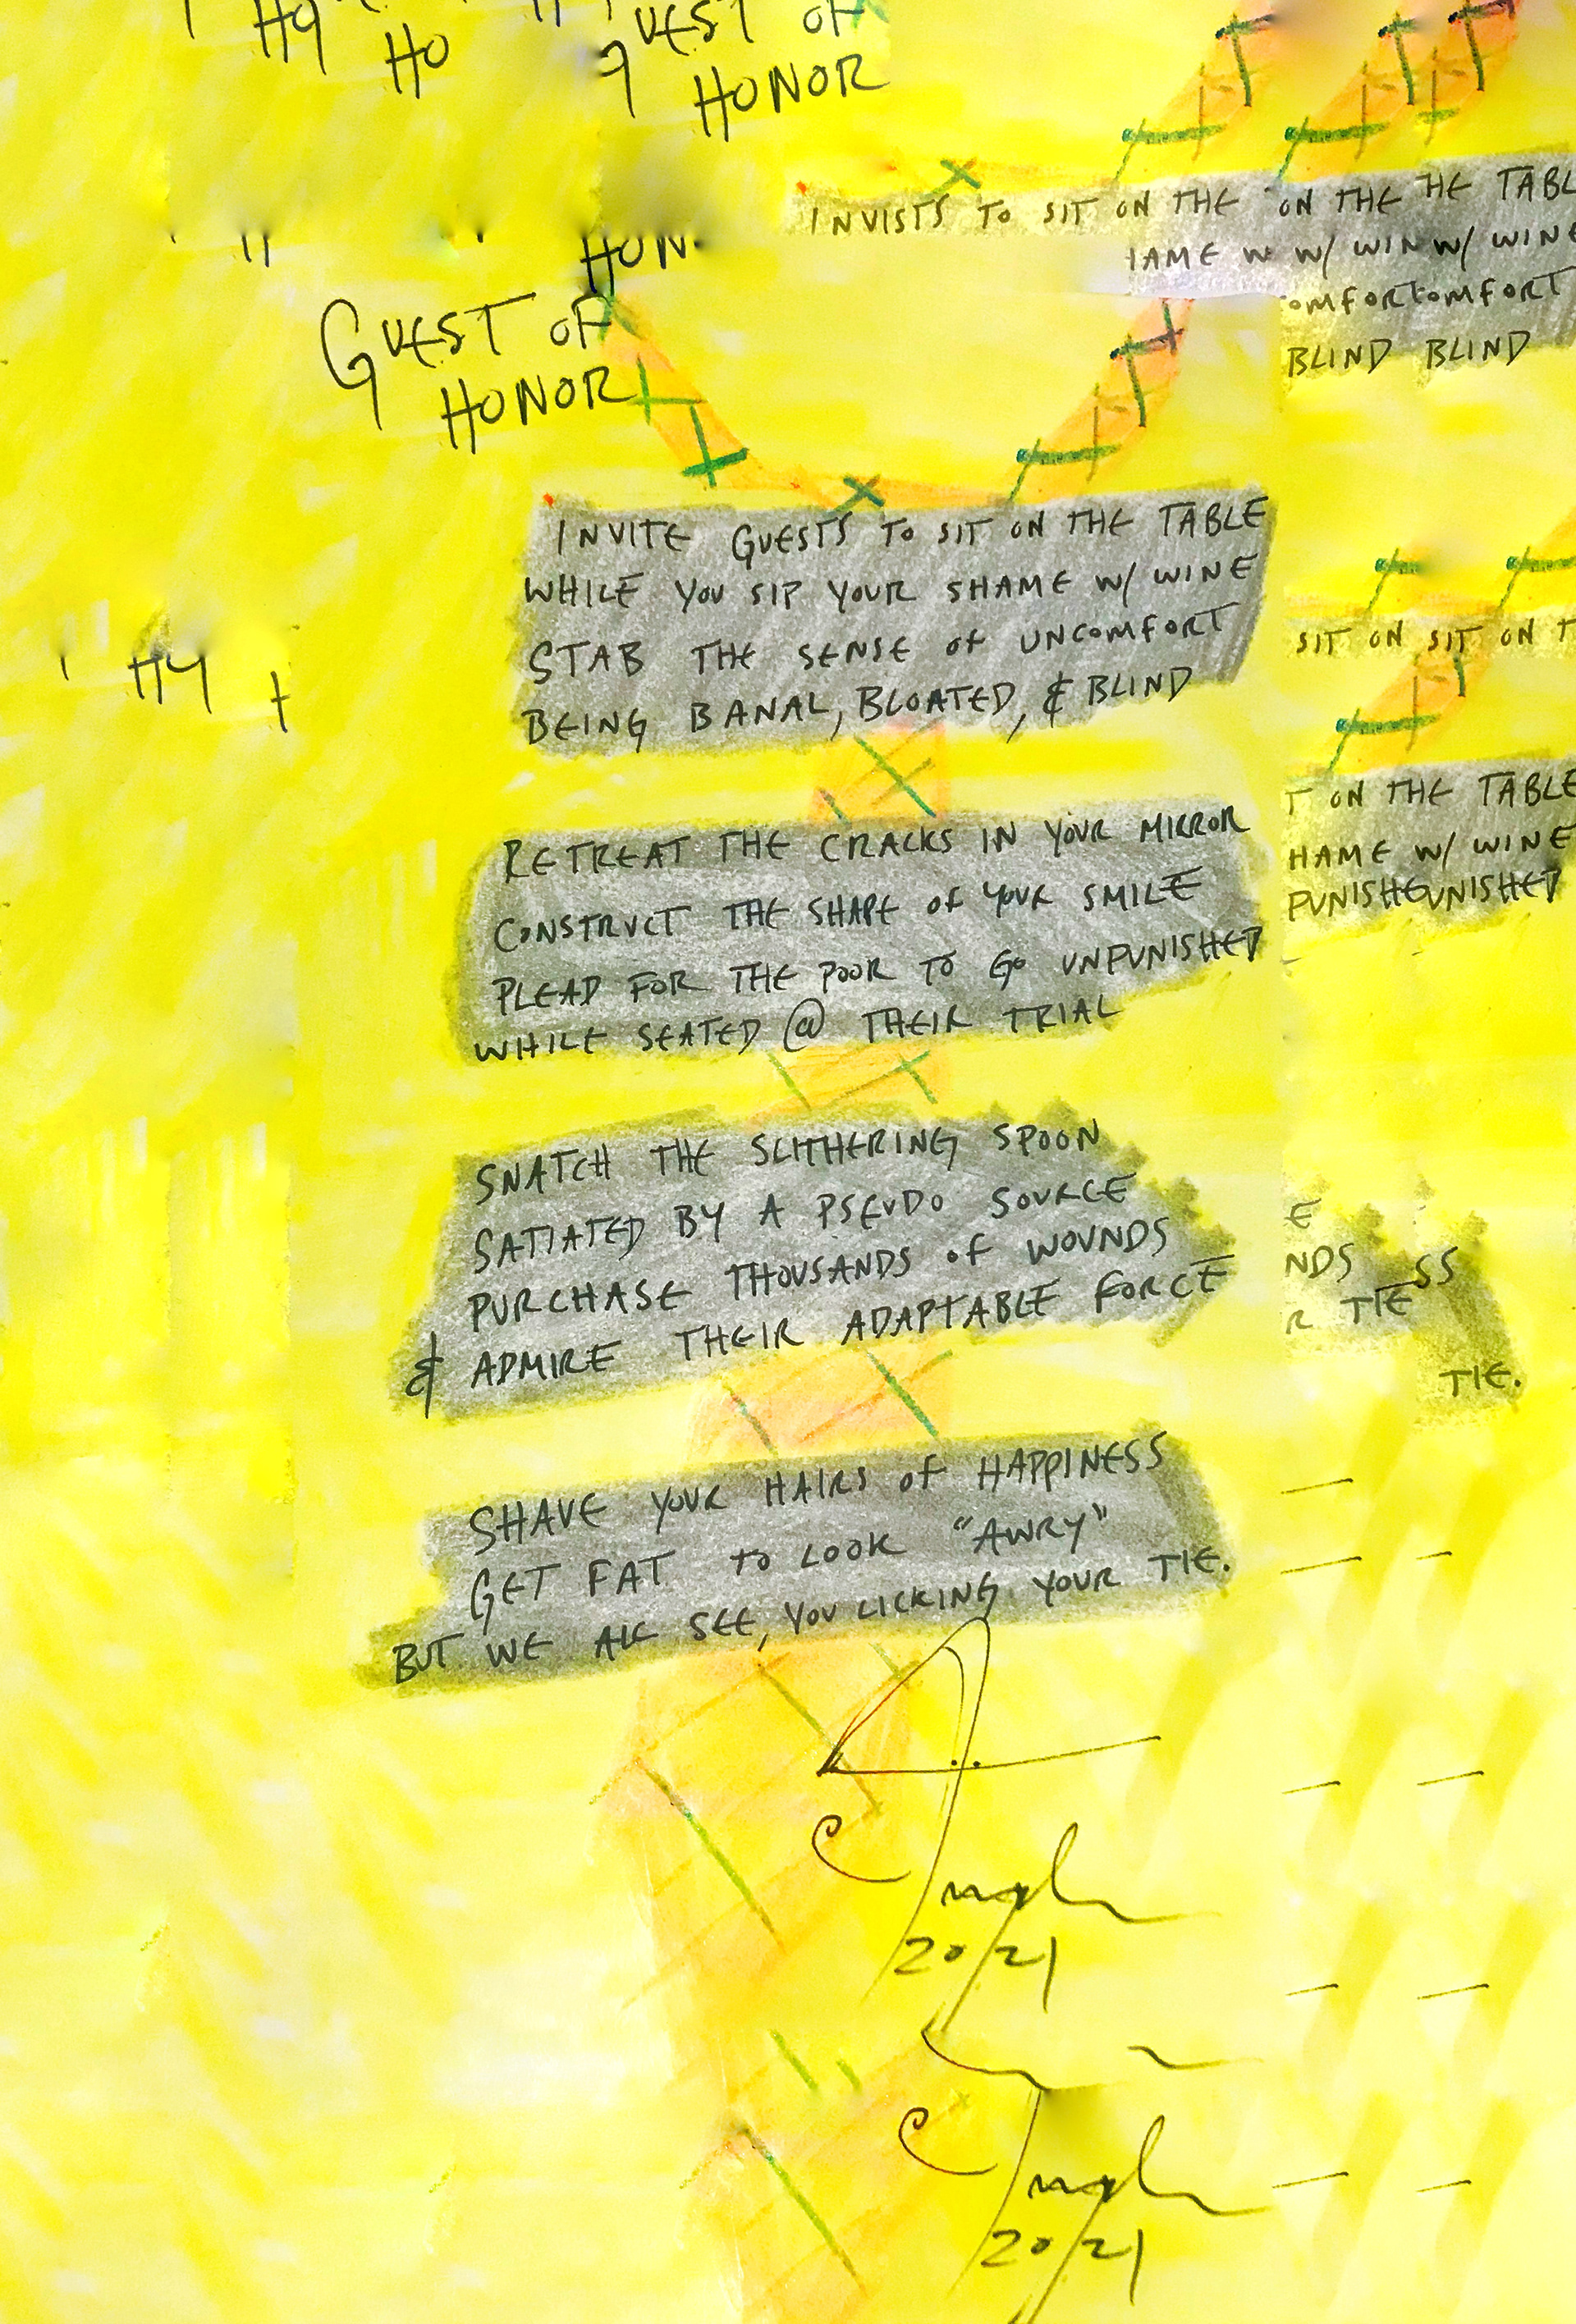 HO
GUEST OF
HONOR
INVISTS TO SIT ON THE ON THE HE TABL
IAME W W/ WIN W/ WINE
OMFORTOMFORT
BLIND BLIND
HON
GUEST OF
HONOR
INVITE GUESTS TO SIT ON THE TABLE
WHILE YOU SIP YOUR SHAME W/ WINE
STAB THE SENSE OF UNCOMFORT
BEING BANAL, BLOATED, & BLIND
SIT ON SIT ON T
T ON THE TABLE
HAME W/ WINE
PUNISHEUNISHED
RETREAT THE CRACKS IN YOUR MIRROR
CONSTRUCT THE SHAPE OF YOUR SMILE
PLEAD FOR THE POOR TO GO UNPUNISHED
WHILE SEATED @ THEIR TRIAL
SNATCH THE SLITHERING SPOON
SATIATED BY A PSEUDO SOURCE
PURCHASE THOUSANDS OF WOUNDS
& ADMIRE THEIR ADAPTABLE FORCE
E
NDS SS
R TIE
TIE.
SHAVE YOUR HAIRS OF HAPPINESS
GET FAT TO LOOK "AWRY"
BUT WE ALL SEE, YOU LICKING YOUR TIE.
2021
2021